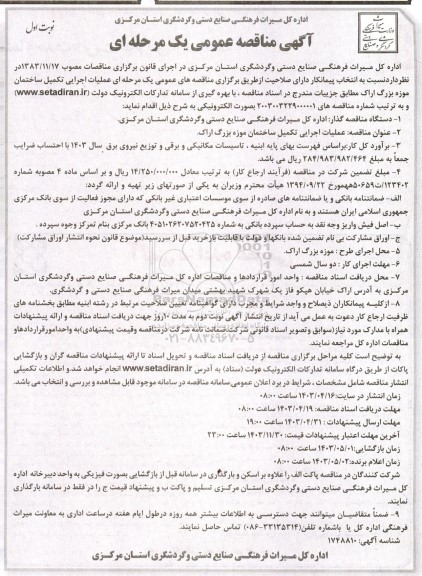 اداره کل میراث فرهنگی صنایع دستی وگردشگری استان مرکزی
نوبت اول
آگهی مناقصه عمومی یک مرحله ای
اداره کل میراث فرهنگی صنایع دستی وگردشگری استان مرکزی در اجرای قانون برگزاری مناقصات مصوب ۱۳۸۳/۱۱/۱۷در
نظرداردنسبت به انتخاب پیمانکار دارای صلاحیت ازطریق برگزاری مناقصه های عمومی یک مرحله ای عملیات اجرایی تکمیل ساختمان
موزه بزرگ اراک مطابق جزییات مندرج در اسناد مناقصه ، با بهره گیری از سامانه تدارکات الکترونیک دولت (www.setadiran.ir)
و به ترتیب شماره مناقصه های ۲۰۰۳۰۰۳۲۲۹۰۰۰۰۰۱ بصورت الکترونیکی به شرح ذیل اقدام نماید:
۱- دستگاه مناقصه گذار: اداره کل میراث فرهنگی صنایع دستی وگردشگری استان مرکزی.
۲- عنوان مناقصه: عملیات اجرایی تکمیل ساختمان موزه بزرگ اراک.
۳- برآورد کل کاربراساس فهرست بهای پایه ابنیه ، تاسیسات مکانیکی و برقی و توزیع نیروی برق سال ۱۴۰۳ با احتساب ضرایب
جمعاً به مبلغ ۲۸۴/۹۸۳/۹۸۲/۴۶۴ ریال می باشد.
۴- مبلغ تضمین شرکت در مناقصه (فرآیند ارجاع کار) به ترتیب معادل ۱۴/۲۵۰/۰۰۰/۰۰۰ ریال و بر اساس ماده ۴ مصوبه شماره
۱۲۳۴۰۲/ت۵۰۶۵۹هـمورخ ۱۳۹۴/۰۹/۲۲ هیأت محترم وزیران به یکی از صورتهای زیر تهیه و ارائه گردد:
الف- ضمانتنامه بانکی و یا ضمانتنامه های صادره از سوی موسسات اعتباری غیر بانکی که دارای مجوز فعالیت از سوی بانک مرکزی
جمهوری اسلامی ایران هستند و به نام اداره کل میراث فرهنگی صنایع دستی وگردشگری استان مرکزی
ب- اصل فیش واریز وجه نقد به حساب سپرده بانکی به شماره ۴۰۵۱۰۲۶۲۰۷۵۲۰۴۲۵ بانک مرکزی بنام تمرکز وجوه سپرده .
ج- اوراق مشارکت بی نام تضمین شده بانکها و دولت با قابلیت بازخرید قبل از سررسید(موضوع قانون نحوه انتشار اوراق مشارکت)
۵- محل اجرای طرح : موزه بزرگ اراک.
۶- مهلت اجرای کار : دو سال شمسی
۷- محل دریافت اسناد مناقصه : واحد امور قراردادها و مناقصات اداره کل میراث فرهنگی صنایع دستی وگردشگری استان
مرکزی به آدرس اراک خیابان هپکو فاز یک شهرک شهید بهشتی میدان میراث فرهنگی صنایع دستی و گردشگری.
۸- ازکلیه پیمانکاران ذیصلاح و واجد شرایط و مجرب دارای گواهینامه تعیین صلاحیت مرتبط در رشته ابنیه مطابق بخشنامه های
ظرفیت ارجاع کار دعوت به عمل می آید از تاریخ انتشار آگهی نوبت دوم به مدت ۱۰روز جهت دریافت اسناد مناقصه و ارائه پیشنهادات
همراه با مدارک مورد نیاز(سوابق و تصویر اسناد قانونی شرکت،ضمانت نامه شرکت درمناقصه وقیمت پیشنهادی)به واحدامورقراردادهاو
مناقصات اداره کل مراجعه نمایند.
به توضیح است کلیه مراحل برگزاری مناقصه از دریافت اسناد مناقصه و تحویل اسناد تا ارائه پیشنهادات مناقصه گران و بازگشایی
پاکات از طریق درگاه سامانه تدارکات الکترونیک دولت (ستاد) به آدرس www.setadiran.ir انجام خواهد شد.و اطلاعات تکمیلی
انتشار مناقصه شامل مشخصات ، شرایط در برد اعلان عمومی سامانه مناقصه در سامانه موجود قابل مشاهده و بررسی و انتخاب می باشد.
زمان انتشار در سایت:۱۴۰۳/۰۴/۱۶ ساعت ۰۸:۰۰
مهلت دریافت اسناد مناقصه: ۱۴۰۳/۰۴/۱۹ ساعت ۰۸:۰۰
مهلت ارسال پیشنهادات : ۱۴۰۳/۰۴/۳۱ ساعت ۱۹:۰۰
آخرین مهلت اعتبار پیشنهادات قیمت: ۱۴۰۳/۱۱/۳۰ ساعت ۲۳:۰۰
زمان بازگشایی:۱۴۰۳/۰۵/۰۱ ساعت ۰۸:۰۰
زمان اعلام برنده:۱۴۰۳/۰۵/۰۲ ساعت ۰۸:۰۰
شرکت کنندگان در مناقصه پاکت الف را علاوه بر اسکن و بارگذاری در سامانه قبل از بازگشایی بصورت فیزیکی به واحد دبیرخانه اداره
کل میراث فرهنگی صنایع دستی وگردشگری استان مرکزی تسلیم و پاکت ب و پیشنهاد قیمت ج را در فقط در سامانه بارگذاری
نمایند.
۹- ضمناً متقاضیان میتوانند جهت دسترسی به اطلاعات بیشتر همه روزه درطول ایام هفته درساعت اداری به معاونت میراث
فرهنگی اداره کل یا باشماره تلفن(۳۳۱۳۵۳۱۴-۰۸۶) تماس حاصل نمایند.
شناسه آگهی: ۱۷۴۸۸۱۰
اداره کل میراث فرهنگی صنایع دستی وگردشگری استان مرکزی